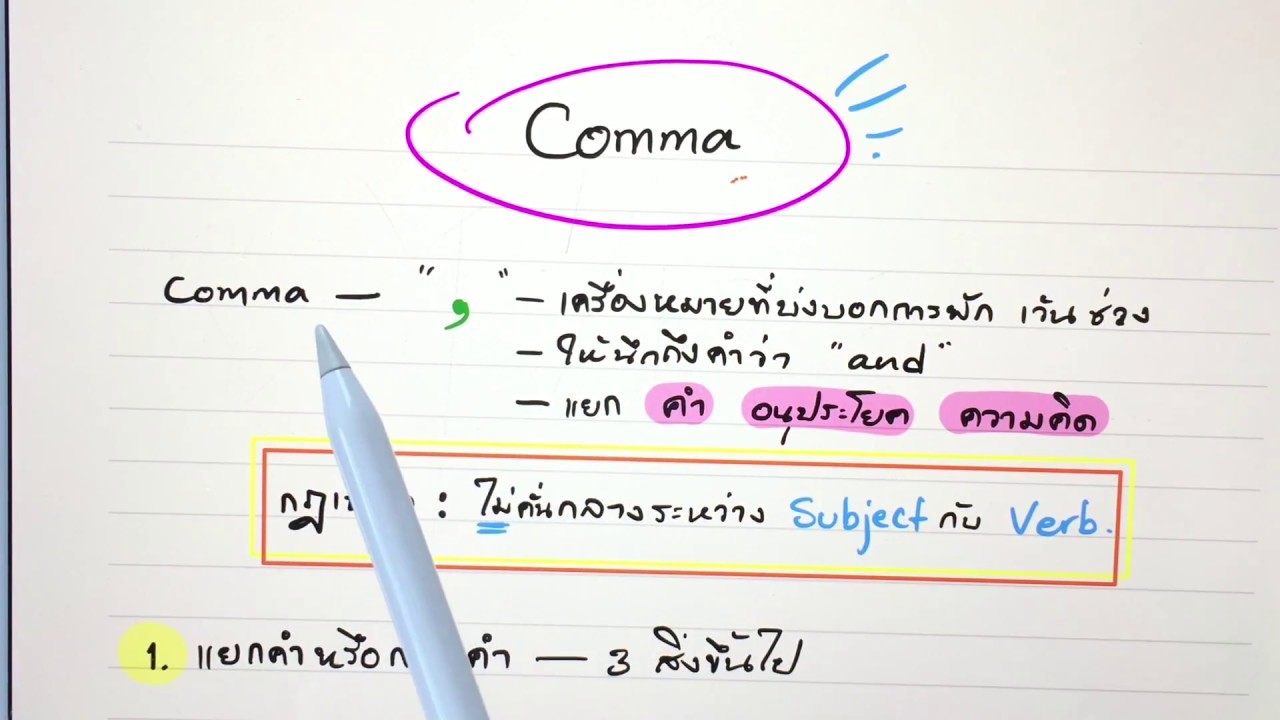 Comma
Comma — " , " — เครื่องหมายที่บ่งบอกการพัก เว้นช่วง
— ให้นึกถึงคำว่า "and"
— แยก คำ อนุประโยค ความคิด
: ไม่คั่นกลางระหว่าง Subject กับ Verb.
1. แยกคำหรือ คำ — 3 สิ่งขึ้นไป